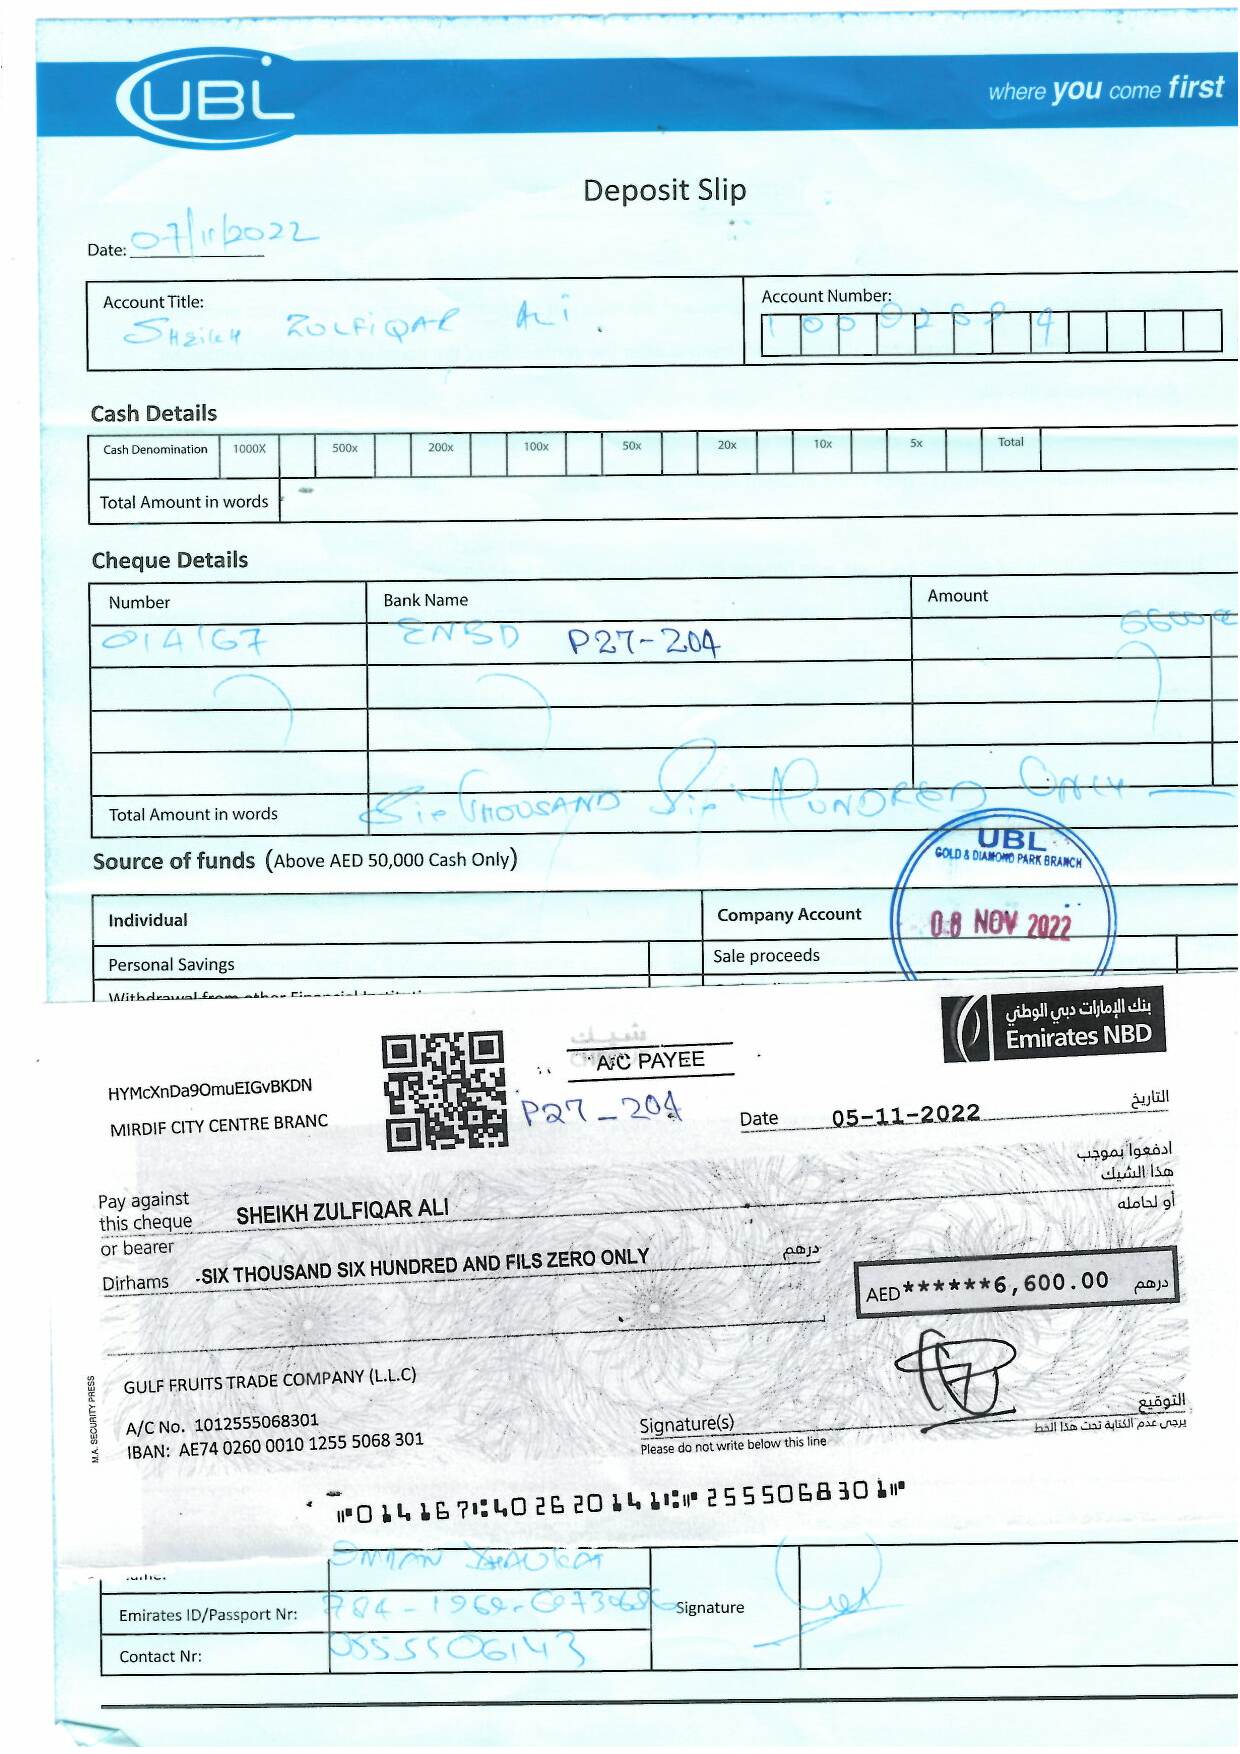 UBL
where you come first
Deposit Slip
Date: 07/11/2022
Account Title:
SHEIKH ZULFIQAR ALI
Account Number:
Cash Details
Cash Denomination 1000X 500x 200x 100x 50x 20x 10x 5x Total
Total Amount in words
Cheque Details
Number Bank Name Amount
014167 ENBD P27-204 6600
Total Amount in words Six THOUSAND Six HUNDRED ONLY
UBL
GOLD & DIAMOND PARK BRANCH
08 NOV 2022
Source of funds (Above AED 50,000 Cash Only)
Individual Company Account
Personal Savings Sale proceeds
Withdrawal from other
بنك الإمارات دبي الوطني
Emirates NBD
شيك
A/C PAYEE
HYMcXnDa9OmuEIGvBKDN
MIRDIF CITY CENTRE BRANC
P27-204
Date 05-11-2022 التاريخ
ادفعوا بموجب
هذا الشيك
أو لحامله
Pay against
this cheque SHEIKH ZULFIQAR ALI
or bearer
Dirhams -SIX THOUSAND SIX HUNDRED AND FILS ZERO ONLY درهم
AED******6,600.00 درهم
GULF FRUITS TRADE COMPANY (L.L.C)
A/C No. 1012555068301
IBAN: AE74 0260 0010 1255 5068 301
M.A. SECURITY PRESS
Signature(s) التوقيع
Please do not write below this line يرجى عدم الكتابة تحت هذا الخط
⑈014167⑆402620141⑆⑈2555068301⑈
Emirates ID/Passport Nr:
Signature
Contact Nr: 0555506143